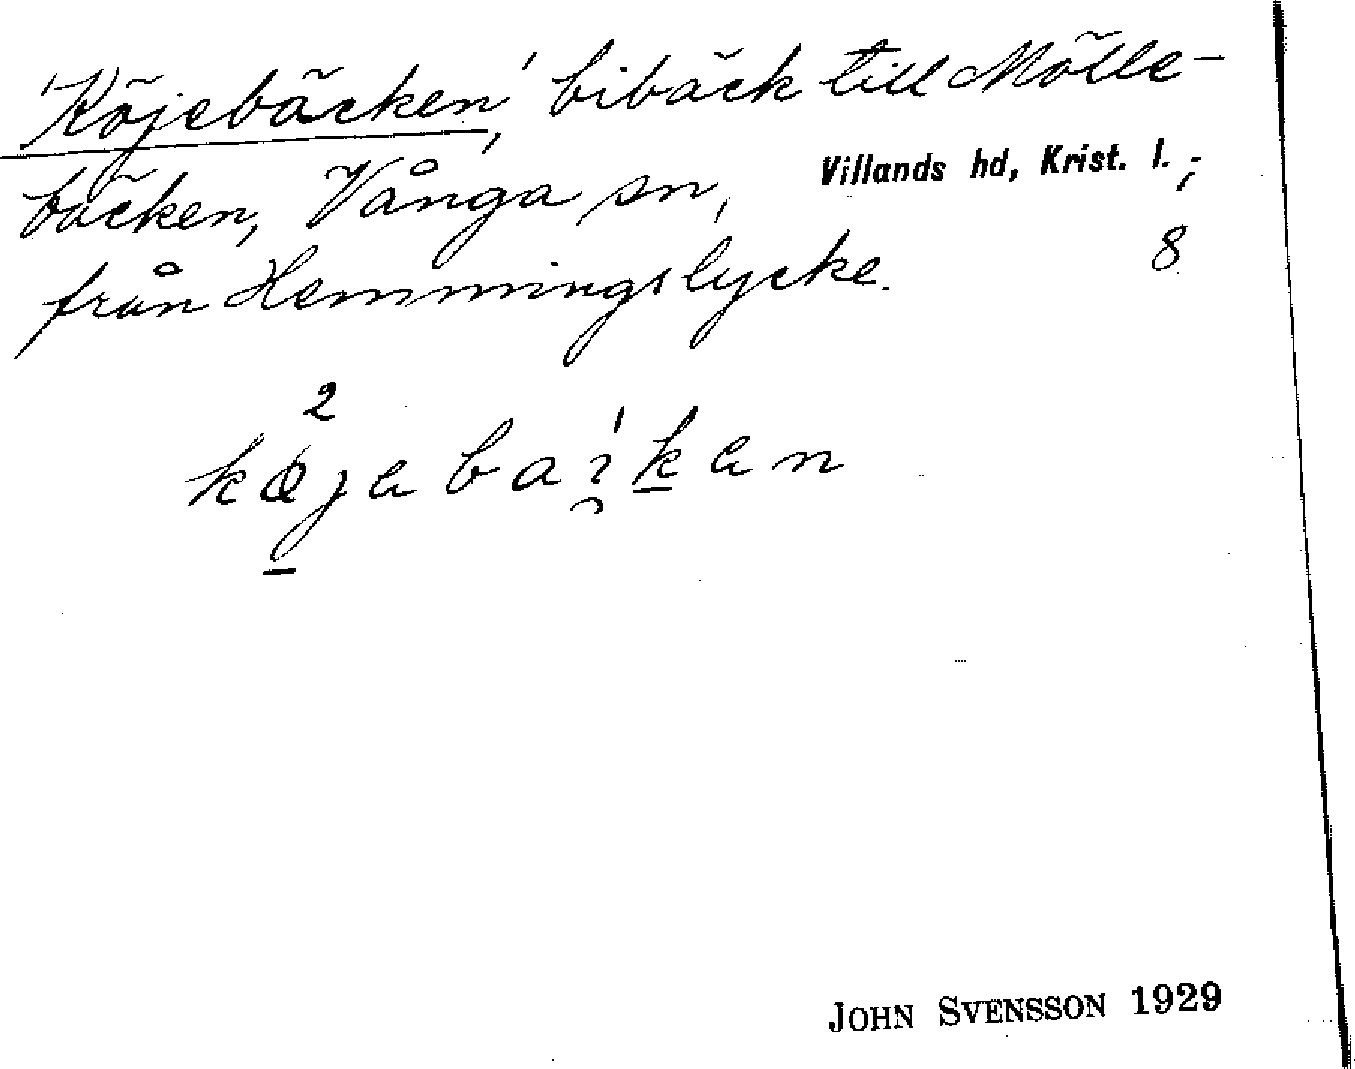 'Köjebäcken', bibäck till Mölle-
bäcken, Vånga sn, Villands hd, Krist. l. ;
från Hemmingslycke. 8
2
JOHN SVENSSON 1929